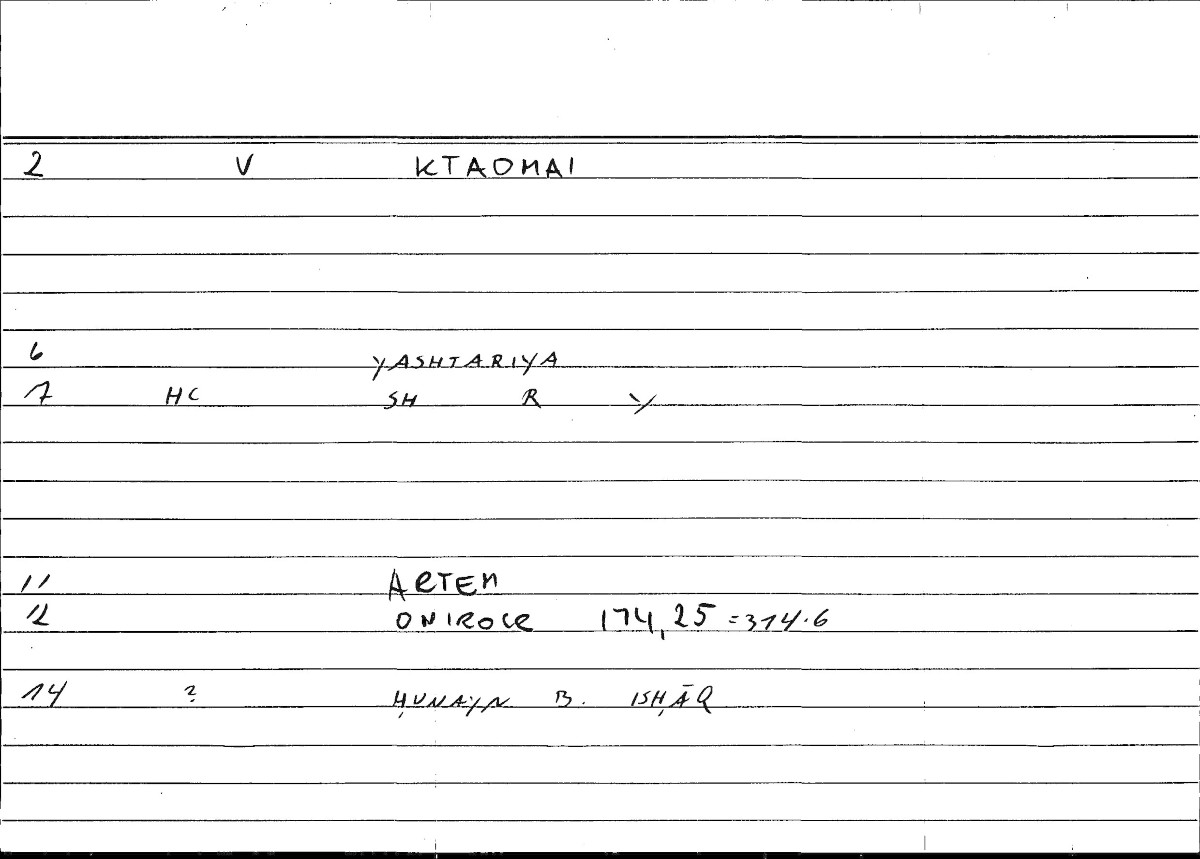 2 V KTAOMAI
6 YASHTARIYA
7 HC SH R Y
11 ARTEM
12 ONIROCR 174,25 =314.6
14 ? ḤUNAYN B. ISḤĀQ